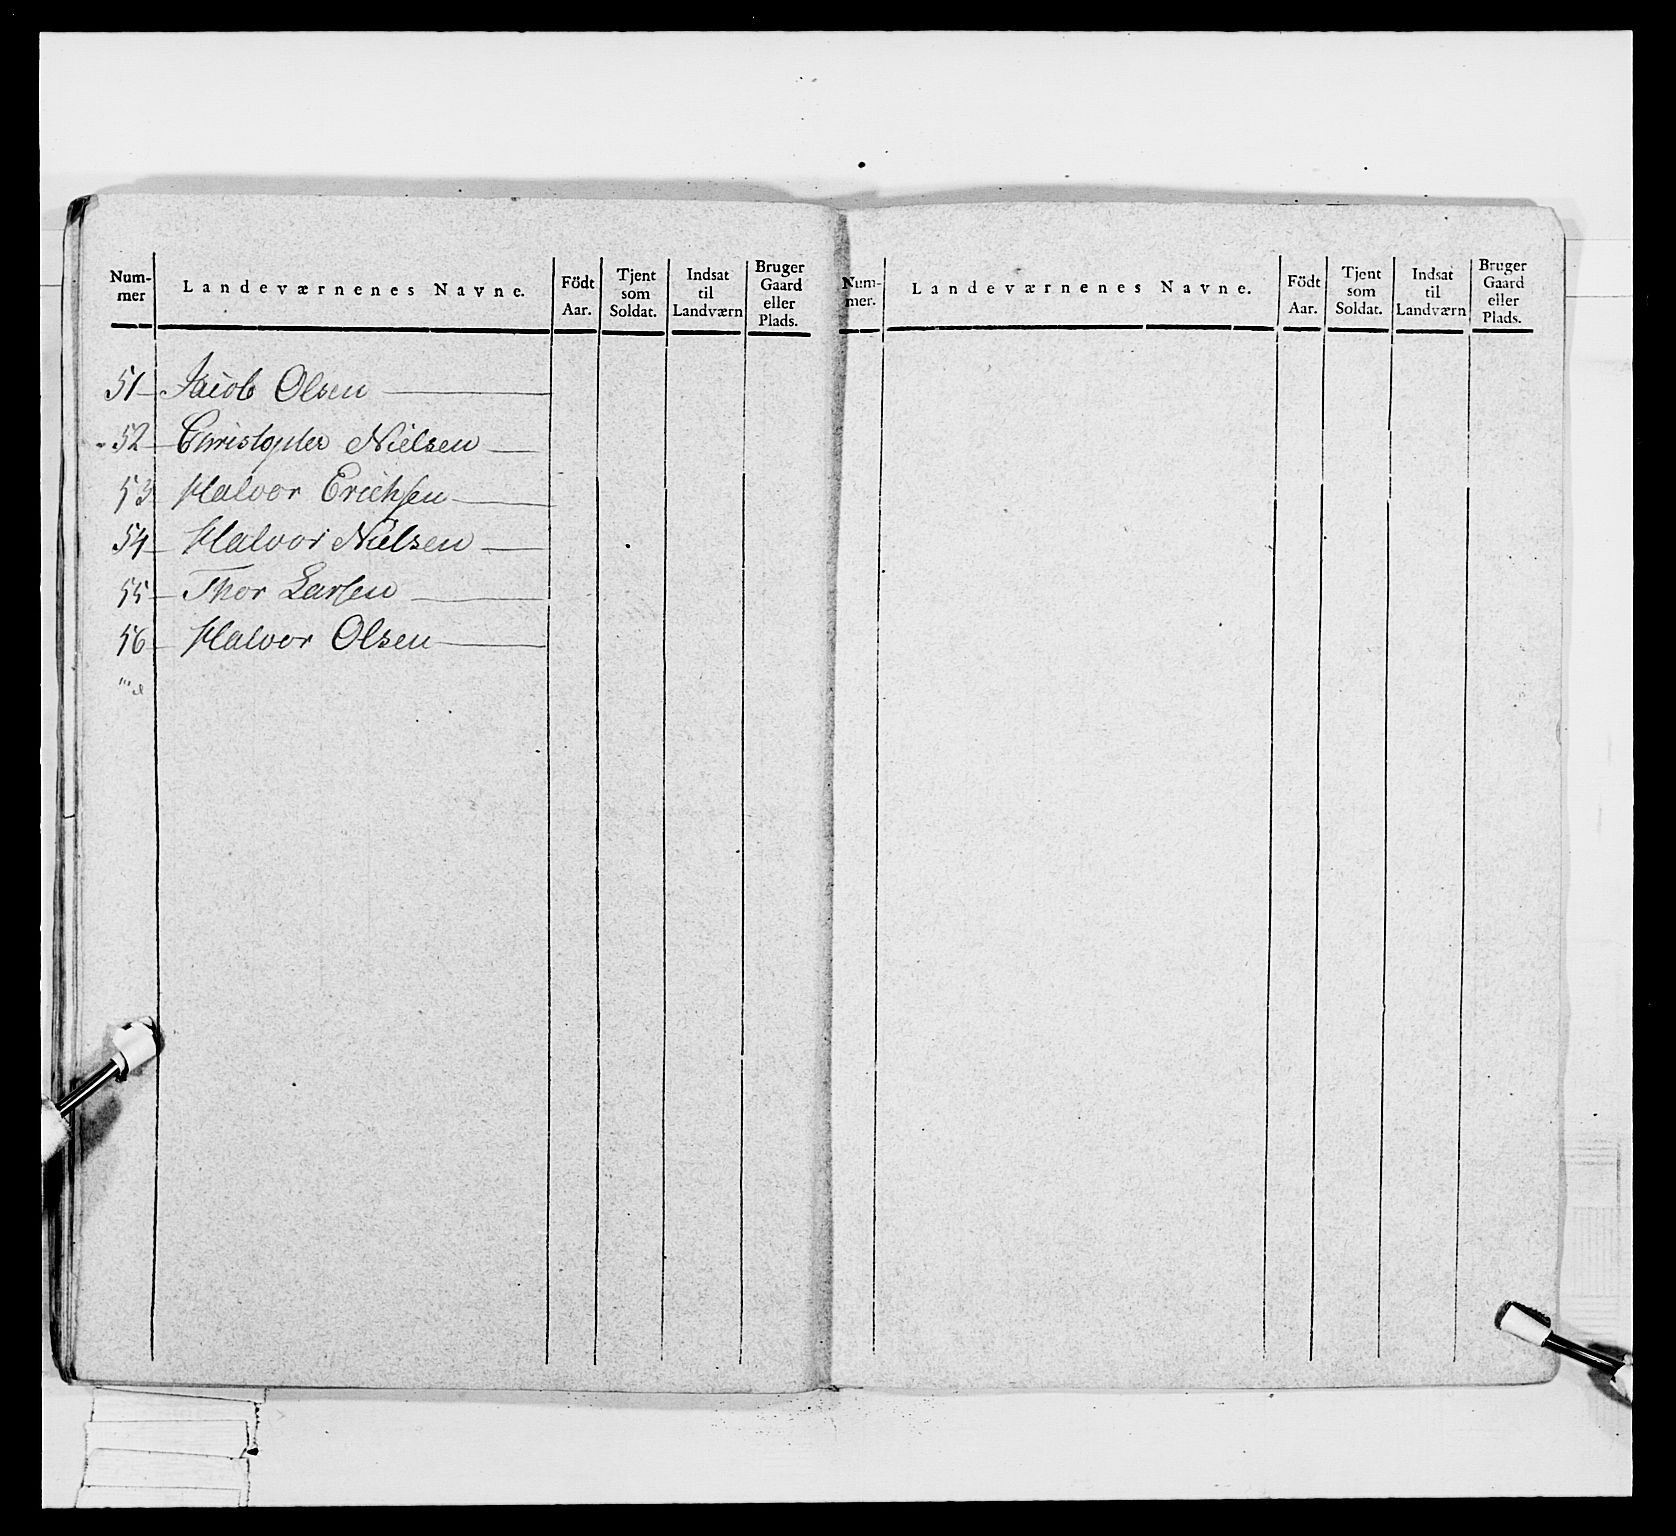 Num-
mer
Landeværnenes Navne.
Födt
Aar.
Tjent
som
Soldat.
Indsat
til
Landværn
Bruger
Gaard
eller
Plads.
51 Jacob Olsen
52 Christopher Nielsen
53 Halvor Erichsen
54 Halvor Nielsen
55 Thor Larsen
56 Halvor Olsen
Num-
mer.
Landeværnenes Navne.
Födt
Aar.
Tjent
som
Soldat.
Indsat
til
Landværn
Bruger
Gaard
eller
Plads.